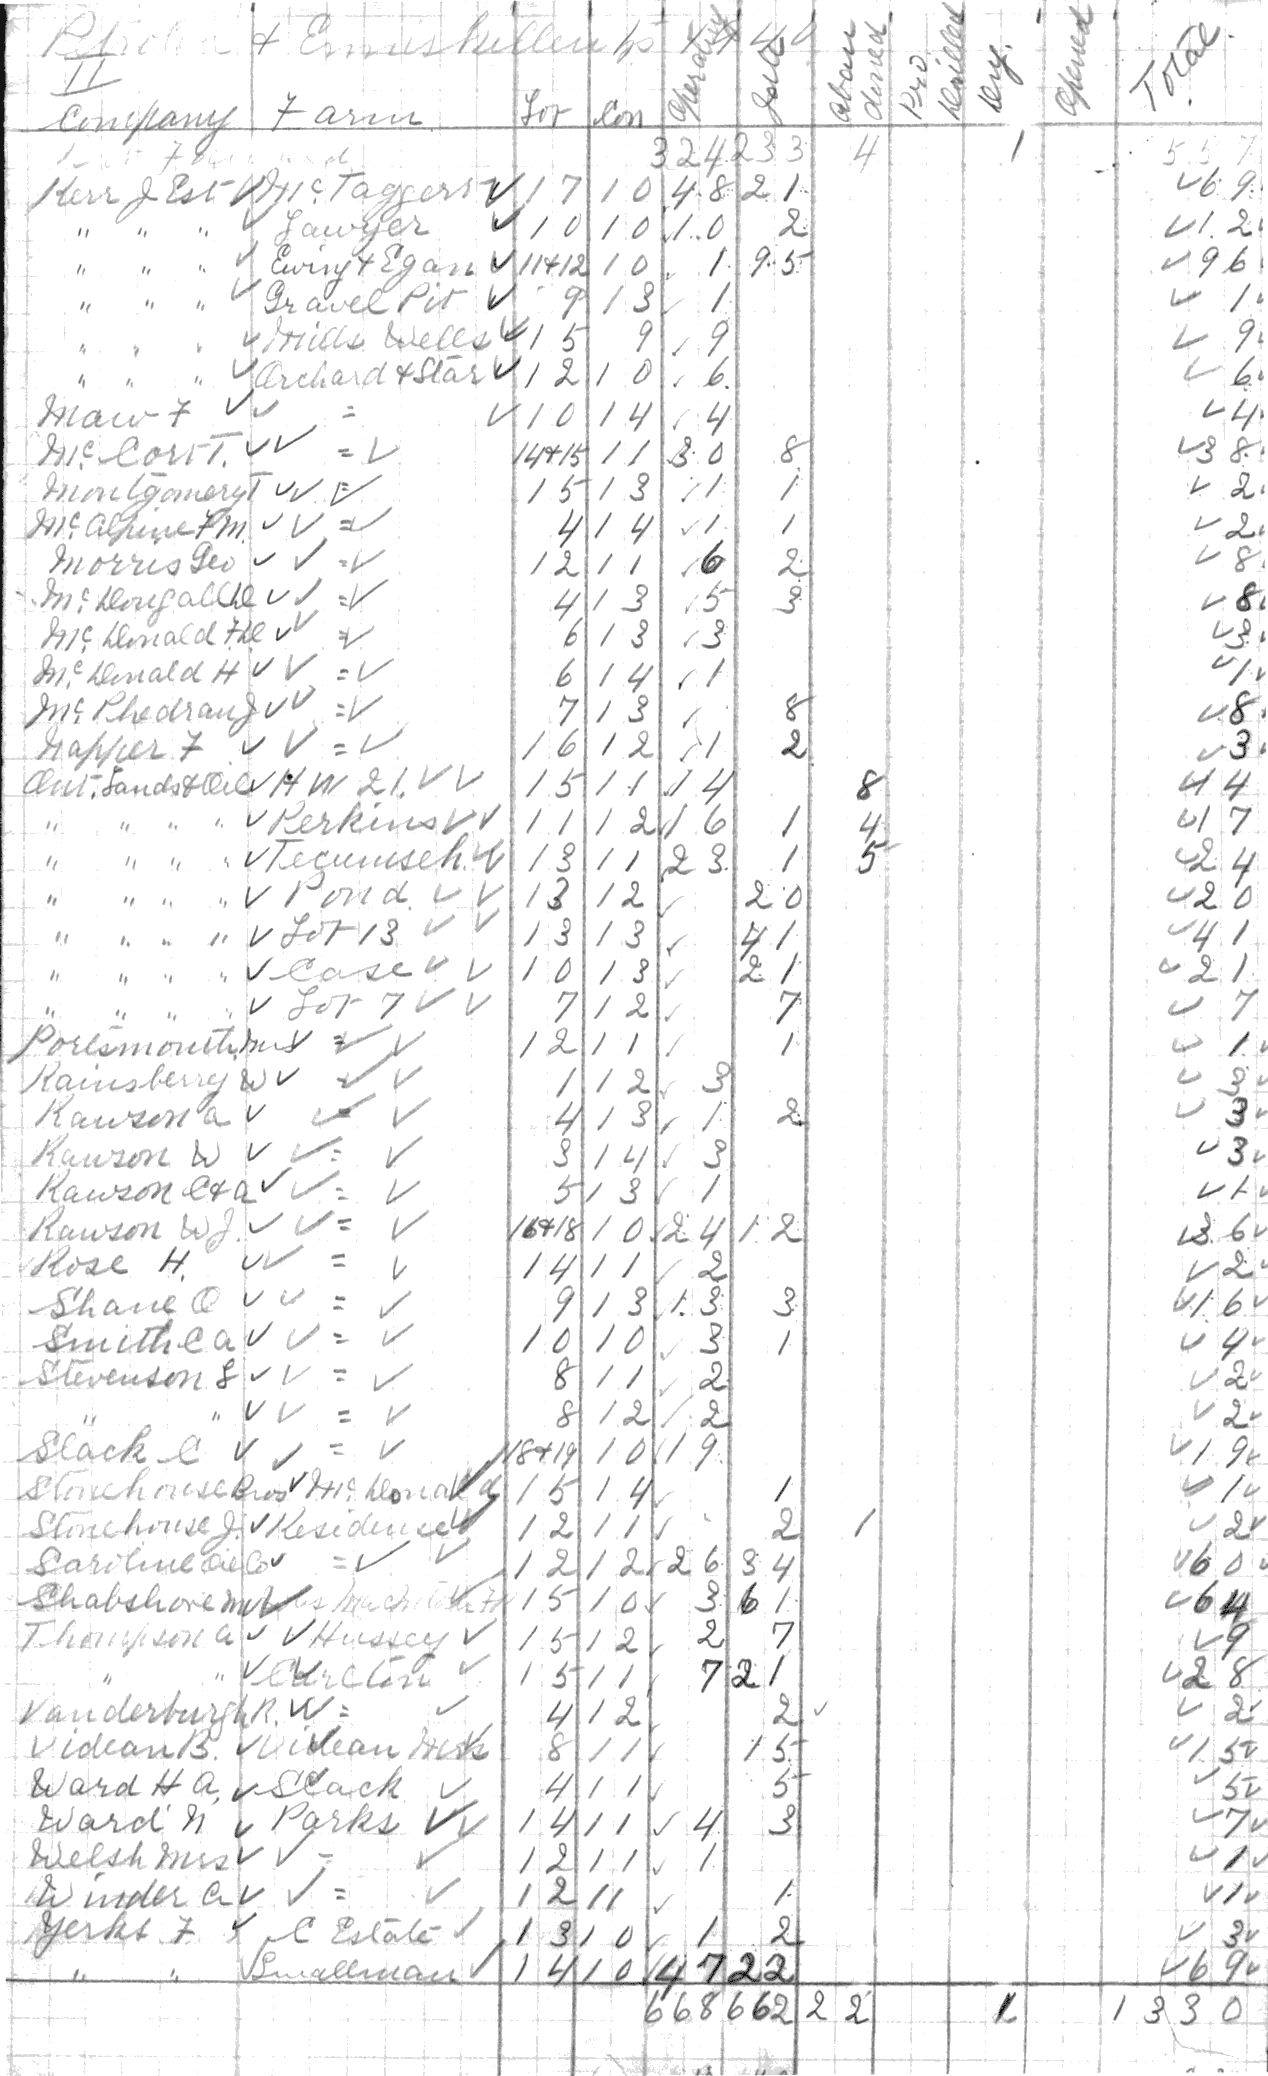 Petrolia & Enniskillen
II
Company Farm Lot Con Operating Idle Aban doned Pro Drilled Dry. Opened Total
324 233 4 1 557
Kerr J Est McTaggert 17 10 48 21 69
" " " Sawyer 10 10 10 2 12
" " " Ewing & Egan 11&12 10 1 95 96
" " " Gravel Pit 9 13 1 1
" " " Mills Wells 15 9 9 9
" " " Orchard & Star 12 10 6 6
Maw F = 10 14 4 4
McCort T. = 14&15 11 30 8 38
Montgomery T = 15 13 1 1 2
McAlpine F M. = 4 14 1 1 2
Morris Geo = 12 11 6 2 8
McDougall = 4 13 5 3 8
McDonald = 6 13 3 3
McDonald H = 6 14 1 1
McPhedran J = 7 13 8 8
Napper F = 16 12 1 2 3
Ont. Lands & Oil H W 21. 15 11 14 8 14
" " " " Perkins 11 12 16 1 4 17
" " " " Tecumseh. 13 11 23 1 5 24
" " " " Pond 13 12 20 20
" " " " Lot 13 13 13 41 41
" " " " Case 10 13 21 21
" " " " Lot 7 7 12 7 7
Portsmouth Mrs = 12 11 1 1
Rainsberry W = 1 12 3 3
Rawson A = 4 13 1 2 3
Rawson W = 3 14 3 3
Rawson C & A = 5 13 1 1
Rawson W J. = 16&18 10 24 12 36
Rose H. = 14 11 2 2
Shane O = 9 13 13 3 16
Smith C A = 10 10 3 1 4
Stevenson S = 8 11 2 2
" " = 8 12 2 2
Slack C = 18&19 10 19 19
Stonehouse Bros McDonald 15 14 1 1
Stonehouse J. Residence 12 11 2 1 2
Scarline Oil Co = 12 12 26 34 60
Shabshove 15 10 3 61 64
Thompson A Hussey 15 12 2 7 9
" " Carlton 15 11 7 21 28
Vanderburgh R. = 4 12 2 2
Videan B. Videan 8 11 15 15
Ward H A. Slack 4 11 5 5
Ward N Parks 14 11 4 3 7
Welsh Mrs = 12 11 1 1
Winder C = 12 11 1 1
Yerks F C Estate 13 10 1 2 3
" " Smallman 14 10 47 22 69
668 662 22 1 1330